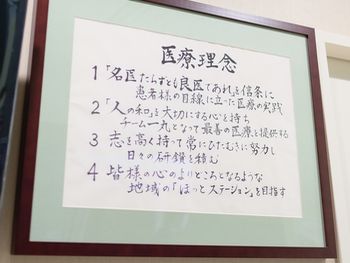 医療理念
1「名医たらずとも良医であれ」を信条に
患者様の目線に立った医療の実践
2「人の和」を大切にする心を持ち
チーム一丸となって最善の医療を提供する
3 志を高く持って常にひたむきに努力し
日々の研鑽を積む
4 皆様の心のよりどころとなるような
地域の「ほっとステーション」を目指す